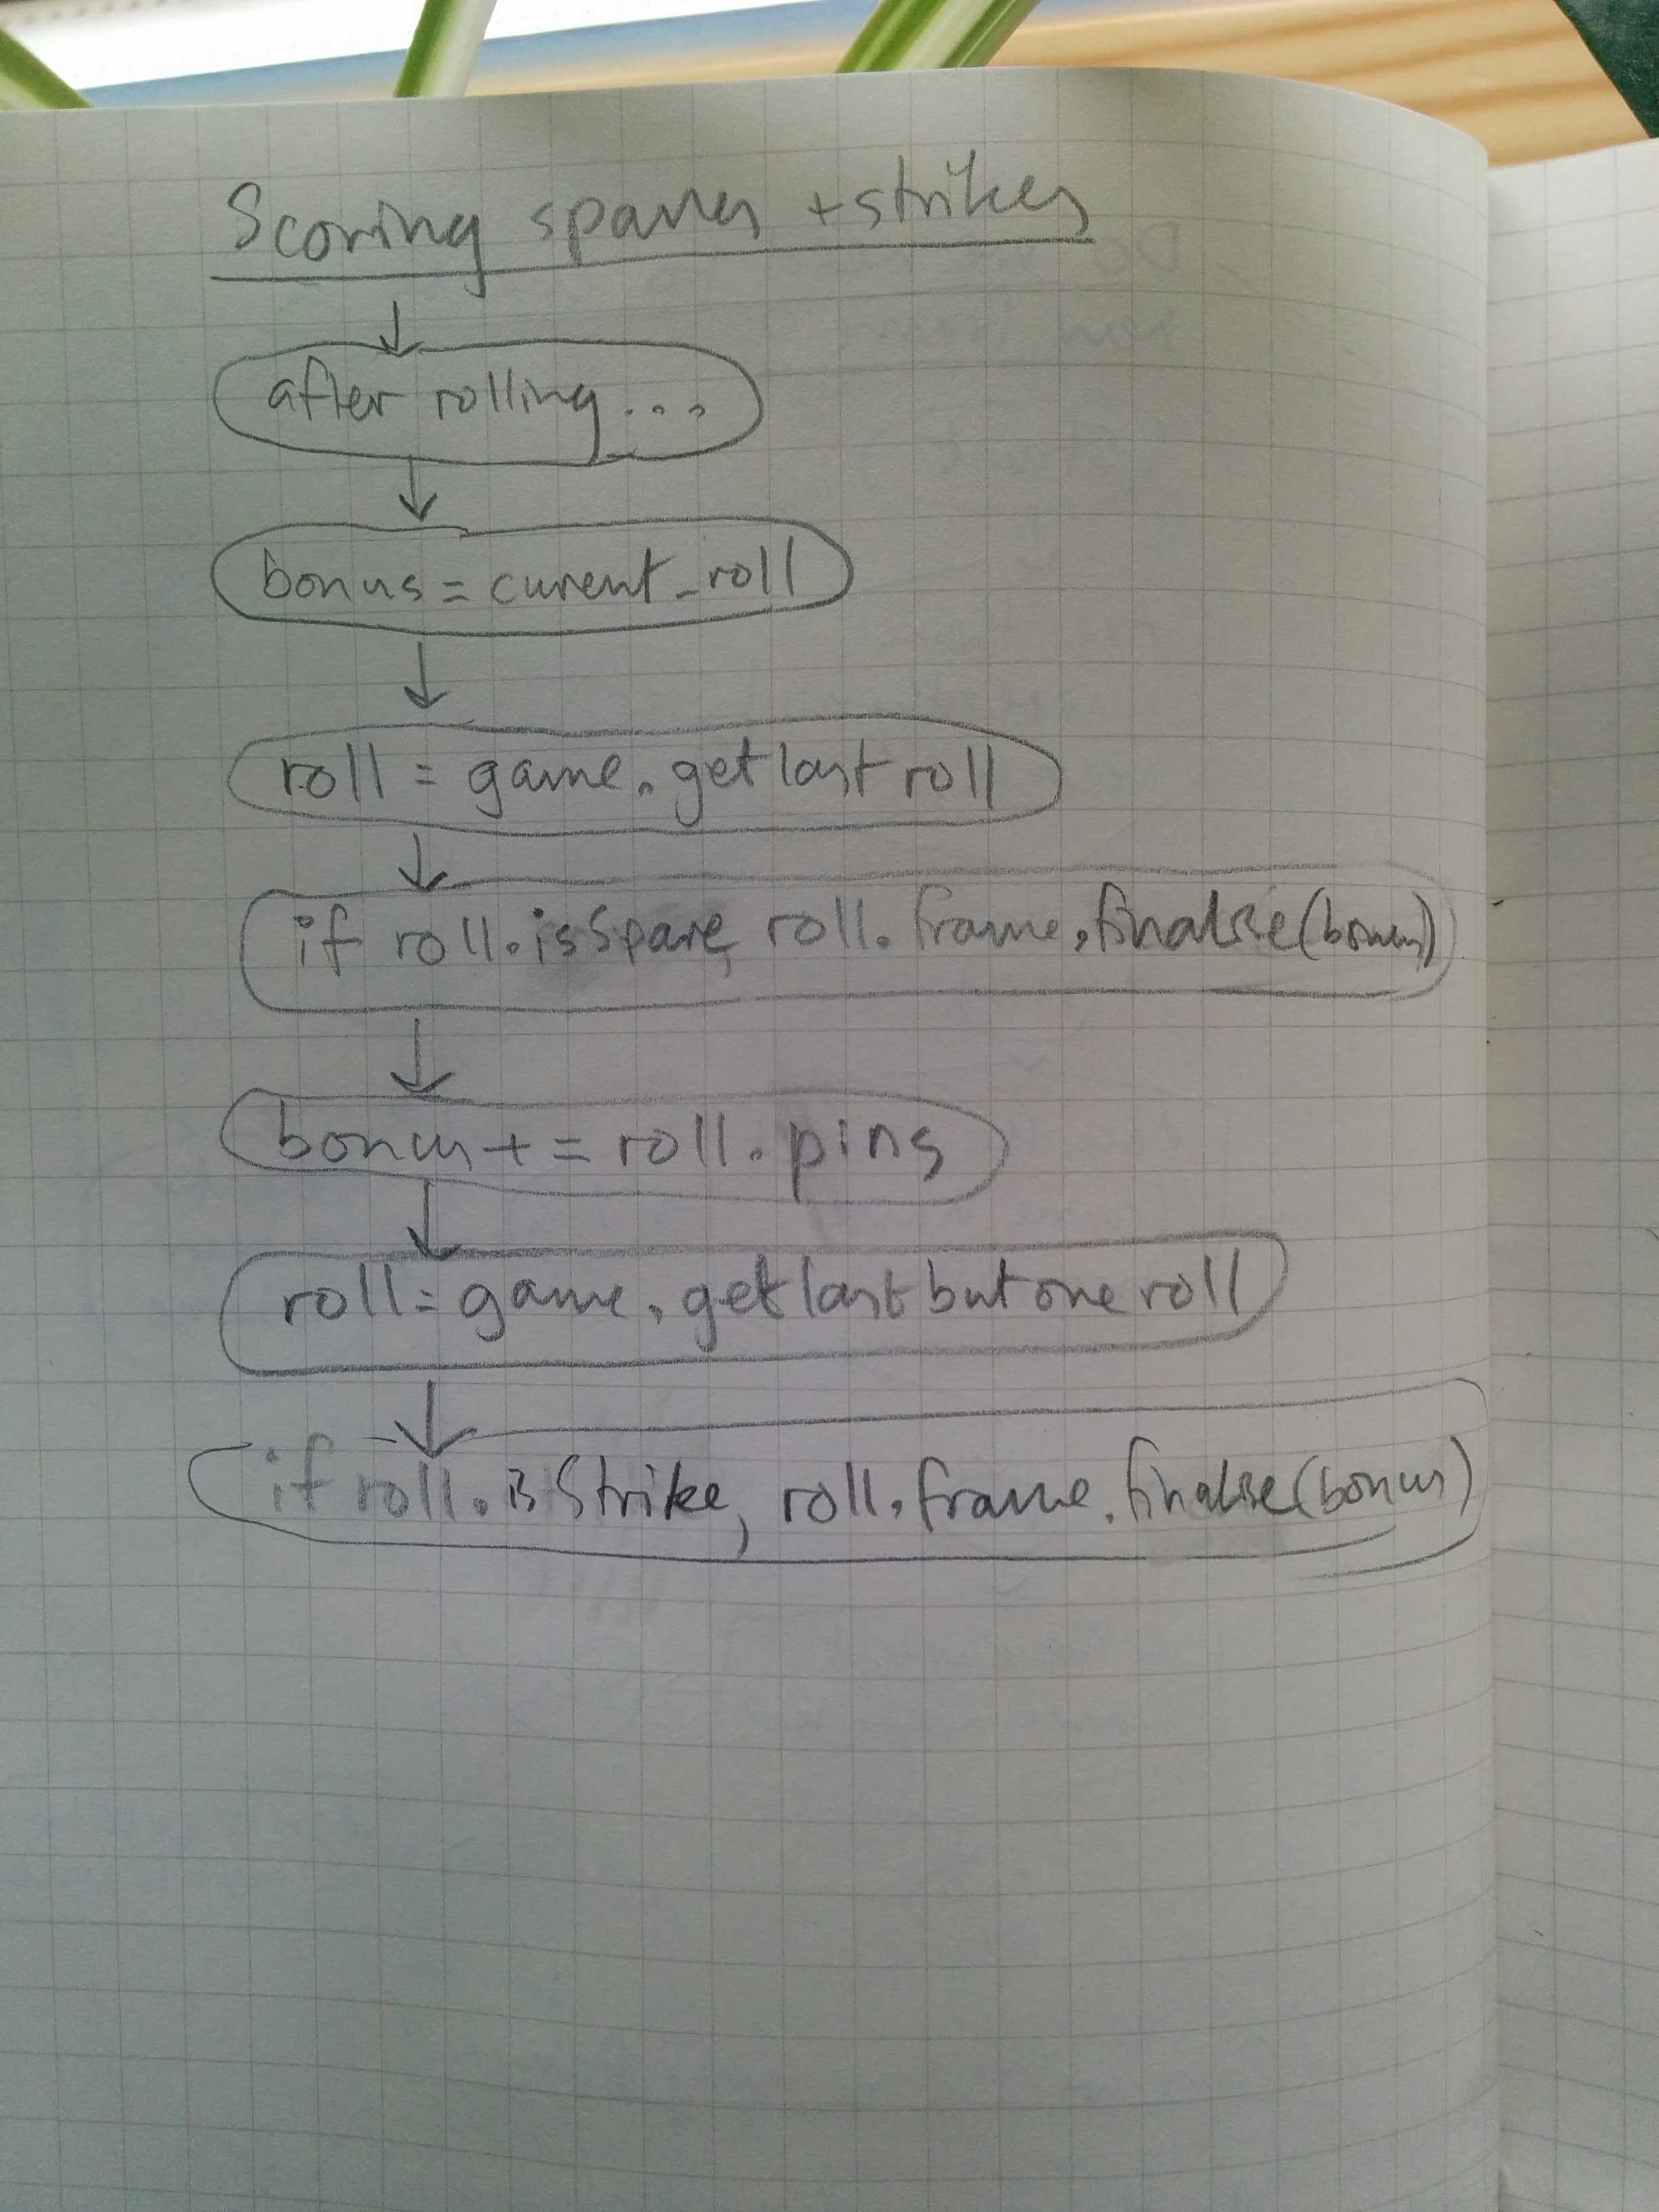 Scoring spares + strikes
after rolling...
bonus = current_roll
roll = game.getlastroll
if roll.isSpare, roll.frame.finalise(bonus)
bonus += roll.pins
roll = game.getlastbutoneroll
if roll.isStrike, roll.frame.finalise(bonus)